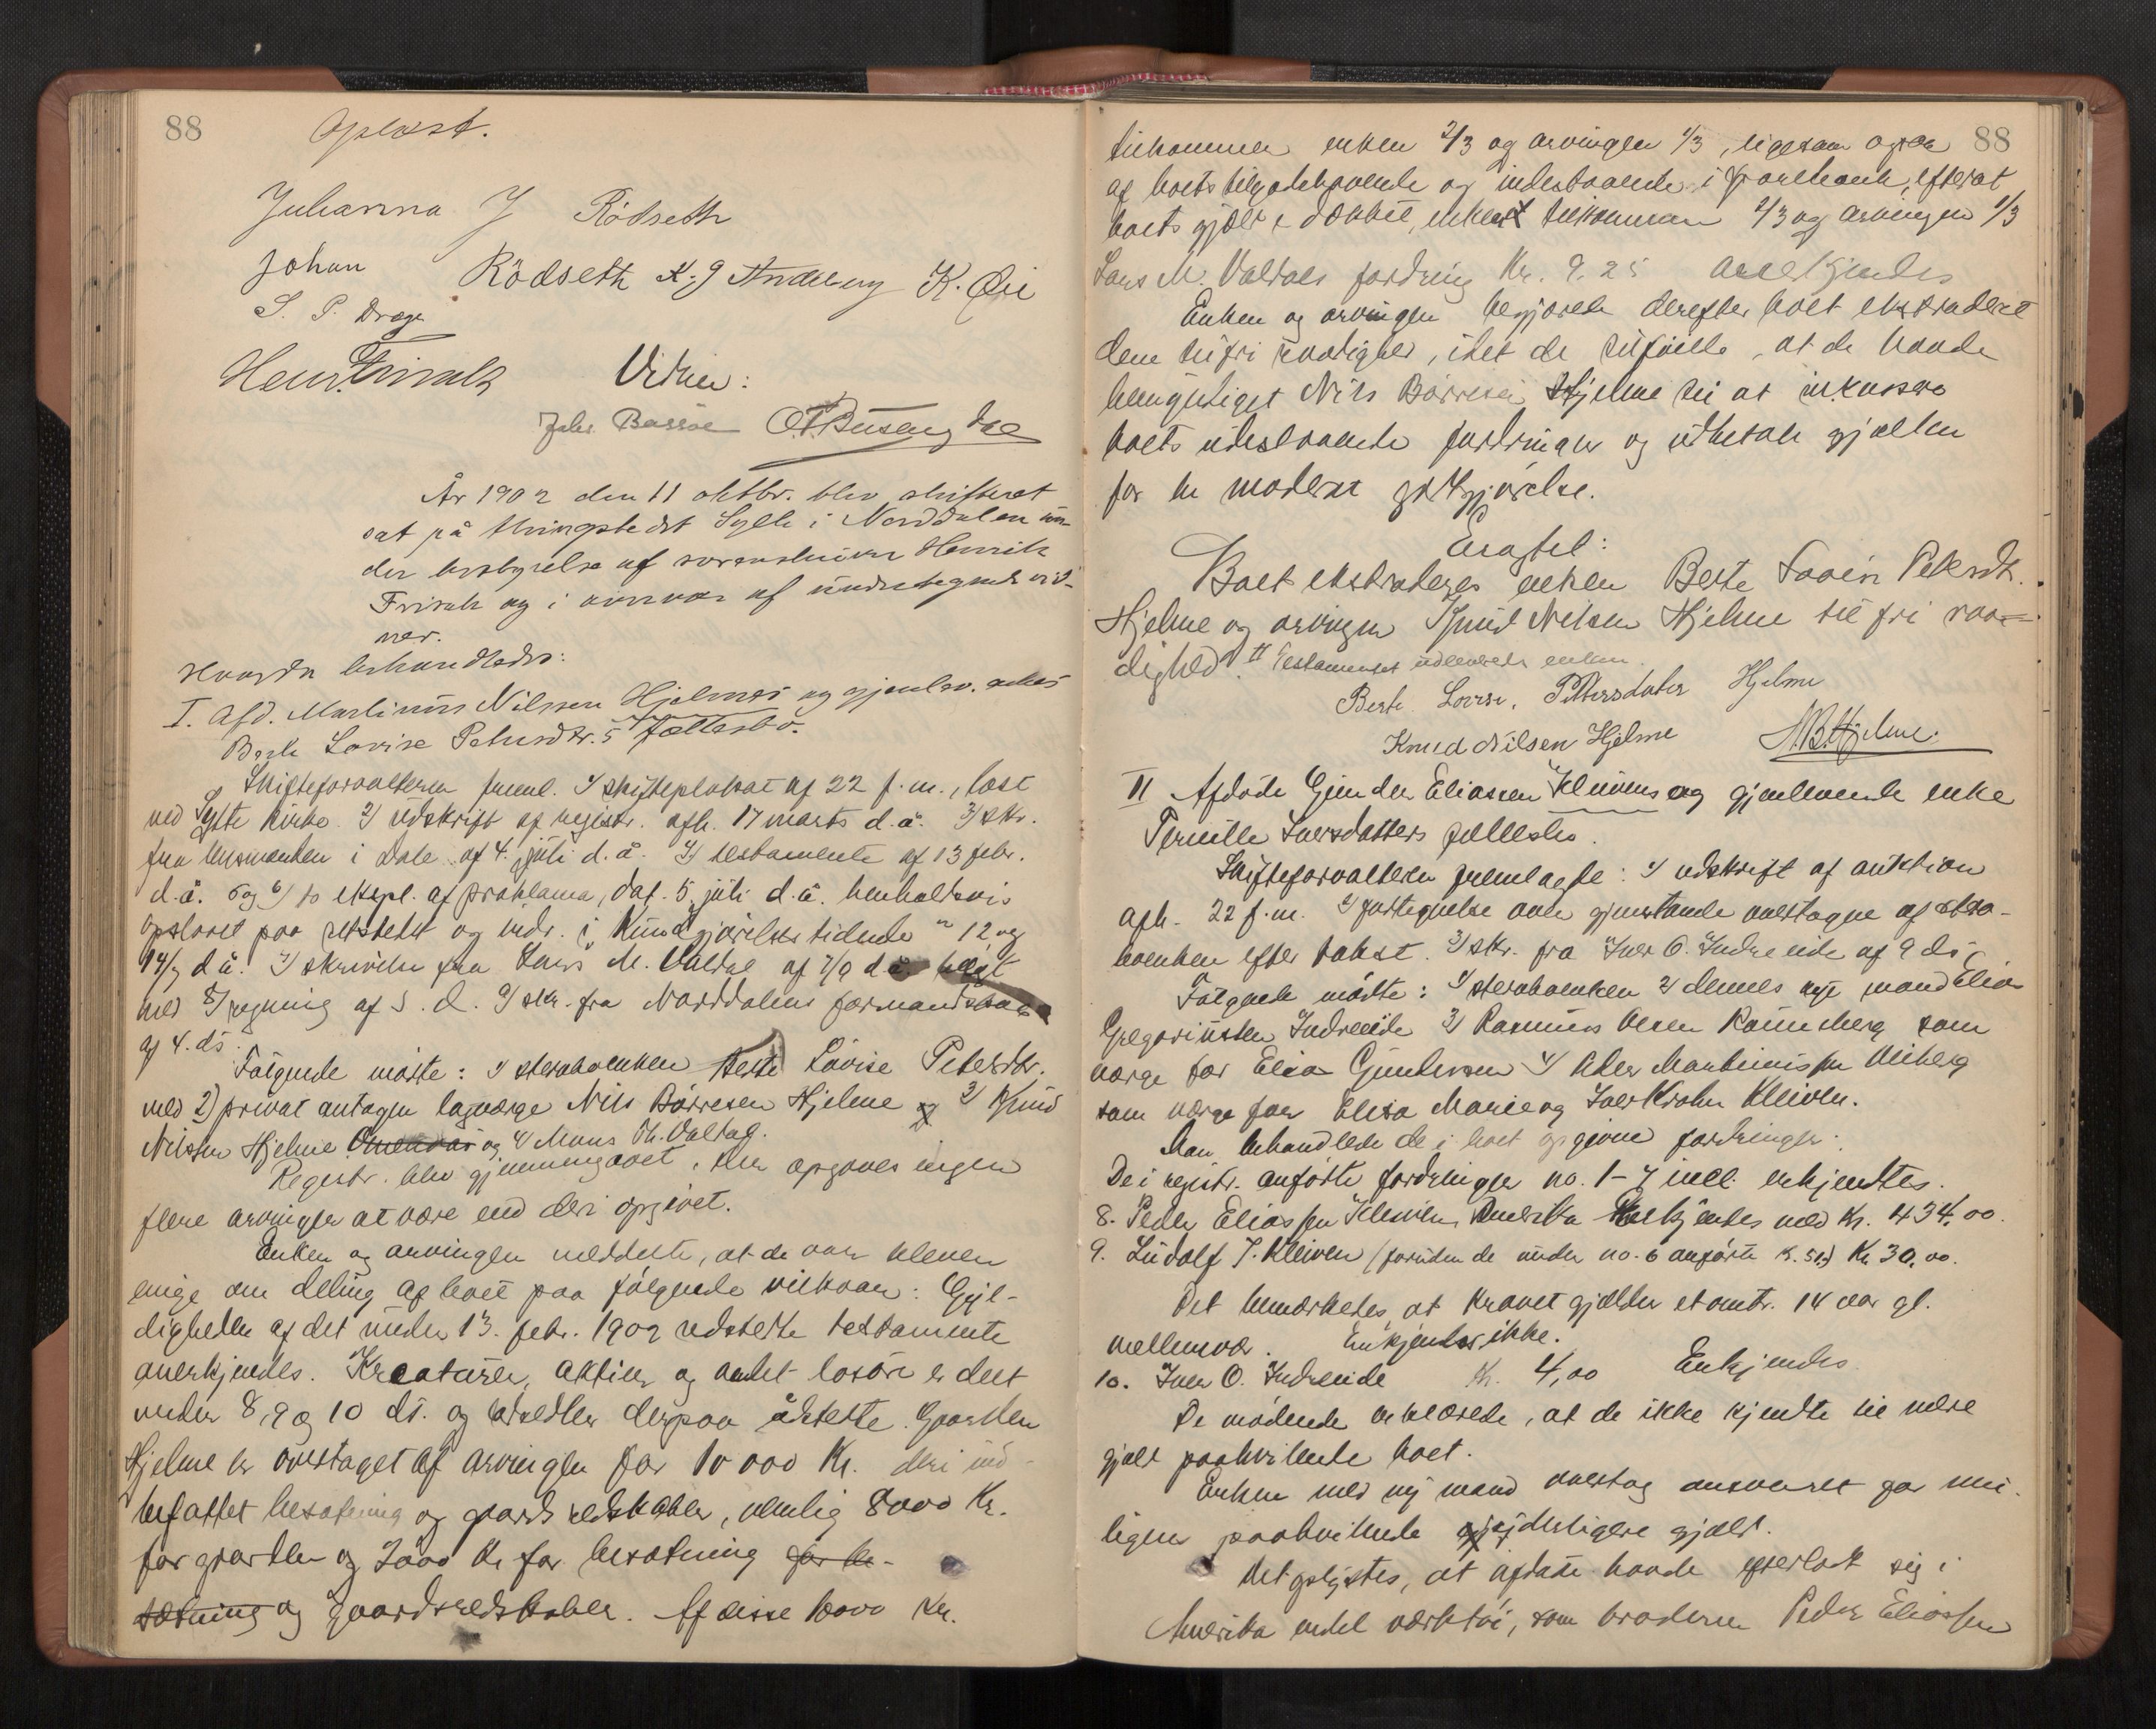 88
Oplæst.
Julianna J Rødseth
Johan Rødseth K. J. K. Øie
S. P. Drage
Henr. Frisak Vidner:
Johs. Bassøe
År 1902 den 11 oktbr. blev skifteret
sat på thingstedet Sylte i Norddalen un-
der bestyrelse af sorenskriver Henrik
Frisak og i overvær af undertegnede vid-
ner.
Hvorda behandledes:
I. Afd. Martinus Nilssen Hjelmes og gjenlev. enkes
Berte Lovise Petersdtr.s fællesbo.
Skifteforvalteren freml. 1/ skifteplakat af 22 f. m., læst
ved Sylte kirke. 2/ udskrift af registr. afh. 17 marts d.å. 3/ skr.
fra lensmanden i Dale af 4. juli d.å. 4/ testamente af 13 febr.
d.å. 5 og 6/ to ekspl. af proklama, dat. 5. juli d.å. henholdsvis
opslaaet paa retstedet og indr. i "Kundgjørelsestidende" 12 og
14/7 d.å. 7/ skrivelse fra Lars M. Valdal af 7/9 d.å. belagt
med 8/ regning af s. d. 9/ skr. fra Norddalens formandskab
af 4. ds.
Følgende mødte: 1/ stervboenken Berte Lovise Petersdtr.
med 2) privat antagen lagværge Nils Børresen Hjelme og 3/ Knud
Nilssen Hjelme og 4/ Mons Th. Valdal.
Registr. blev gjennemgaaet. Der opgaves ingen
flere arvinger at være end deri opgivet.
Enken og arvingen meddelte, at de var bleven
enige om deling af boet paa følgende vilkaar: Gyl-
digheden af det under 13. febr. 1902 udstedte testamente
anerkjendes. Kreaturer, aktier og andet løsøre er delt
under 8, 9 og 10 ds. og derpaa udstedte. Gaarden
Hjelme er overtaget af arvingen for 10 000 Kr. deri ind-
befattet besætning og gaardsredskaber, nemlig 8000 Kr.
for gaarden og 2000 Kr for besætning for be-
sætning og gaardsredskaber. Af disse 10000 Kr.
88
tilkommer enken 2/3 og arvingen 1/3, ligesom ogsaa
af boets tilgodehavende og indestaaende i sparebank, efterat
boets gjæld er dækket, enken tilkommer 2/3 og arvingen 1/3
Lars M. Valdals fordring Kr. 9.25 anerkjendes
Enken og arvingen begjærede derefter boet ekstraderet
dem til fri raadighed, idet de tilføiede, at de havde
bemyndiget Nils Børresen Hjelme til at inkassere
boets udestaaende fordringer og udbetale gjælden
for en moderat godtgjørelse.
Eragtet:
Boet ekstraderes enken Berte Lovise Petersdtr.
Hjelme og arvingen Knud Nilsen Hjelme til fri raa-
dighed. Testamentet udleveredes enken.
Berte Lovise Pettersdater Hjelme
Knud Nilsen Hjelme N. B. Hjelme.
II Afdøde Gunder Eliassen Kleivens og gjenlevende enke
Pernille Iversdatters fællesbo.
Skifteforvalteren fremlagde: 1/ udskrift af auktion
afh. 22 f. m. 2/ fortegnelse over gjenstande overtagne af sterv-
boenken efter takst. 3/ skr. fra Iver O. Indreeide af 9 ds.
Følgende mødte: 1/ stervboenken 2/ dennes nye mand Elias
Gregoriussen Indreeide 3/ Rasmus Olsen Rønneberg som
værge for Elias Gundersen 4/ Martinussen Uriberg
som værge for Elisa Marie og Iver Krohn Kleiven.
Man behandlede de i boet opgivne fordringer:
De i registr. anførte fordringer no. 1-7 incl. erkjendtes.
8. Peder Eliassen Kleiven, Amerika Erkjendes med Kr. 434,00.
9. Ludolf J. Kleiven (foruden de under no. 6 anførte) Kr. 30,00.
Det bemærkedes, at kravet gjælder et omtr. 14 aar gl.
mellemvær. Erkjendes ikke.
10. Iver O. Indreeide Kr. 4,00 Erkjendes
De mødende erklærede, at de ikke kjendte til mere
gjæld paahvilende boet.
Enken med ny mand overtog ansvaret for mu-
ligens paahvilende yderligere gjæld.
Det oplystes, at afdøde havde efterladt sig i
Amerika endel værktøi, som broderen Peder Eliassen